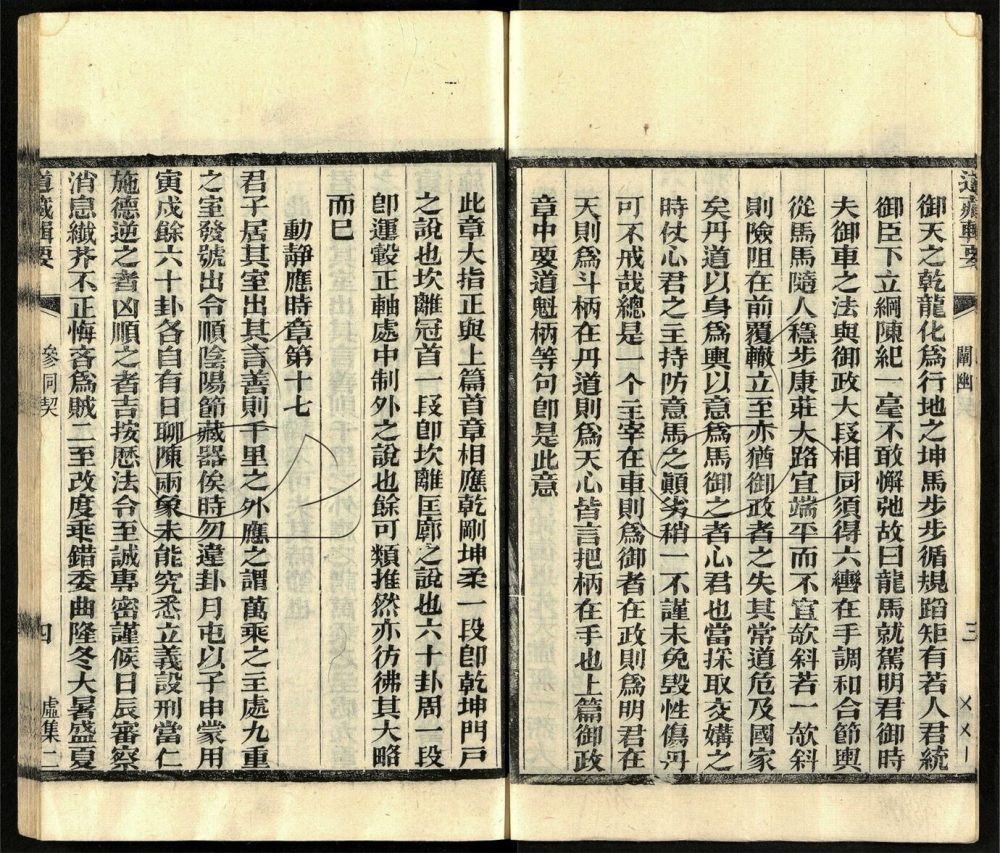 道藏輯要
闡幽
三
御天之乾龍化爲行地之坤馬步步循規蹈矩有若人君統
御臣下立綱陳紀一毫不敢懈弛故曰龍馬就駕明君御時
夫御車之法與御政大段相同須得六轡在手調和合節輿
從馬馬隨人穩步康莊大路宜端平而不宜欹斜若一欹斜
則險阻在前覆轍立至亦猶御政者之失其常道危及國家
矣丹道以身爲輿以意爲馬御之者心君也當採取交媾之
時仗心君之主持防意馬之顛劣稍一不謹未免毀性傷丹
可不戒哉總是一个主宰在車則爲御者在政則爲明君在
天則爲斗柄在丹道則爲天心皆言把柄在手也上篇御政
章中要道魁柄等句卽是此意
此章大指正與上篇首章相應乾剛坤柔一段卽乾坤門戸
之說也坎離冠首一段卽坎離匡廓之說也六十卦周一段
卽運轂正軸處中制外之說也餘可類推然亦彷彿其大略
而已
動靜應時章第十七
君子居其室出其言善則千里之外應之謂萬乘之主處九重
之室發號出令順陰陽節藏器俟時勿違卦月屯以子申蒙用
寅戌餘六十卦各自有日聊陳兩象未能究悉立義設刑當仁
施德逆之者凶順之者吉按厯法令至誠專密謹候日辰審察
消息纖芥不正悔吝爲賊二至改度乖錯委曲隆冬大暑盛夏
道藏輯要
參同契
四
虛集二